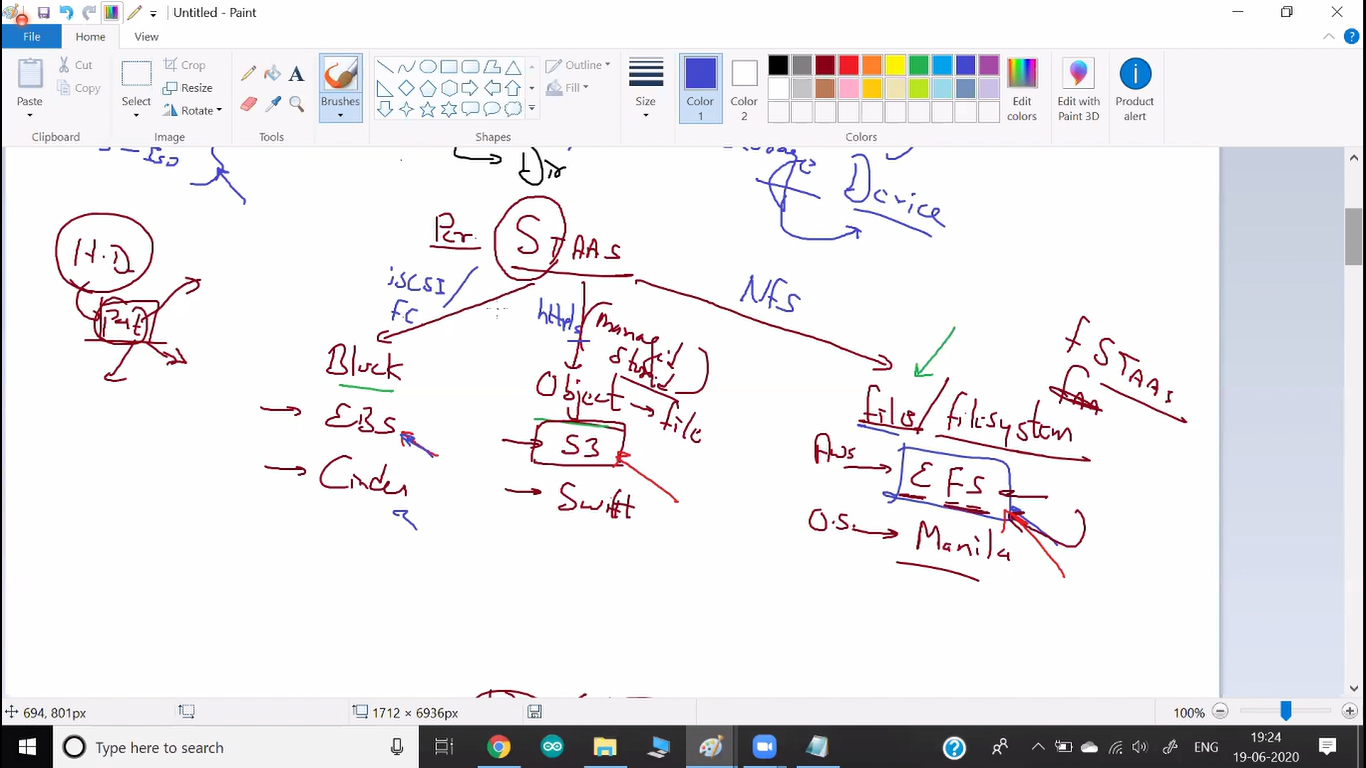 Untitled - Paint
File
Home
View
Paste
Cut
Copy
Clipboard
Select
Crop
Resize
Rotate
Image
Tools
Brushes
Shapes
Outline
Fill
Size
Color 1
Color 2
Colors
Edit colors
Edit with Paint 3D
Product alert
Dir
Device
H.D
Per
STAAS
iSCSI
FC
https
NFS
Block
EBS
Cinder
Object
file
S3
Swift
fSTAAS
file/filesystem
Aws
EFS
O.S.
Manila
694, 801px
1712 × 6936px
100%
Type here to search
ENG
19:24
19-06-2020